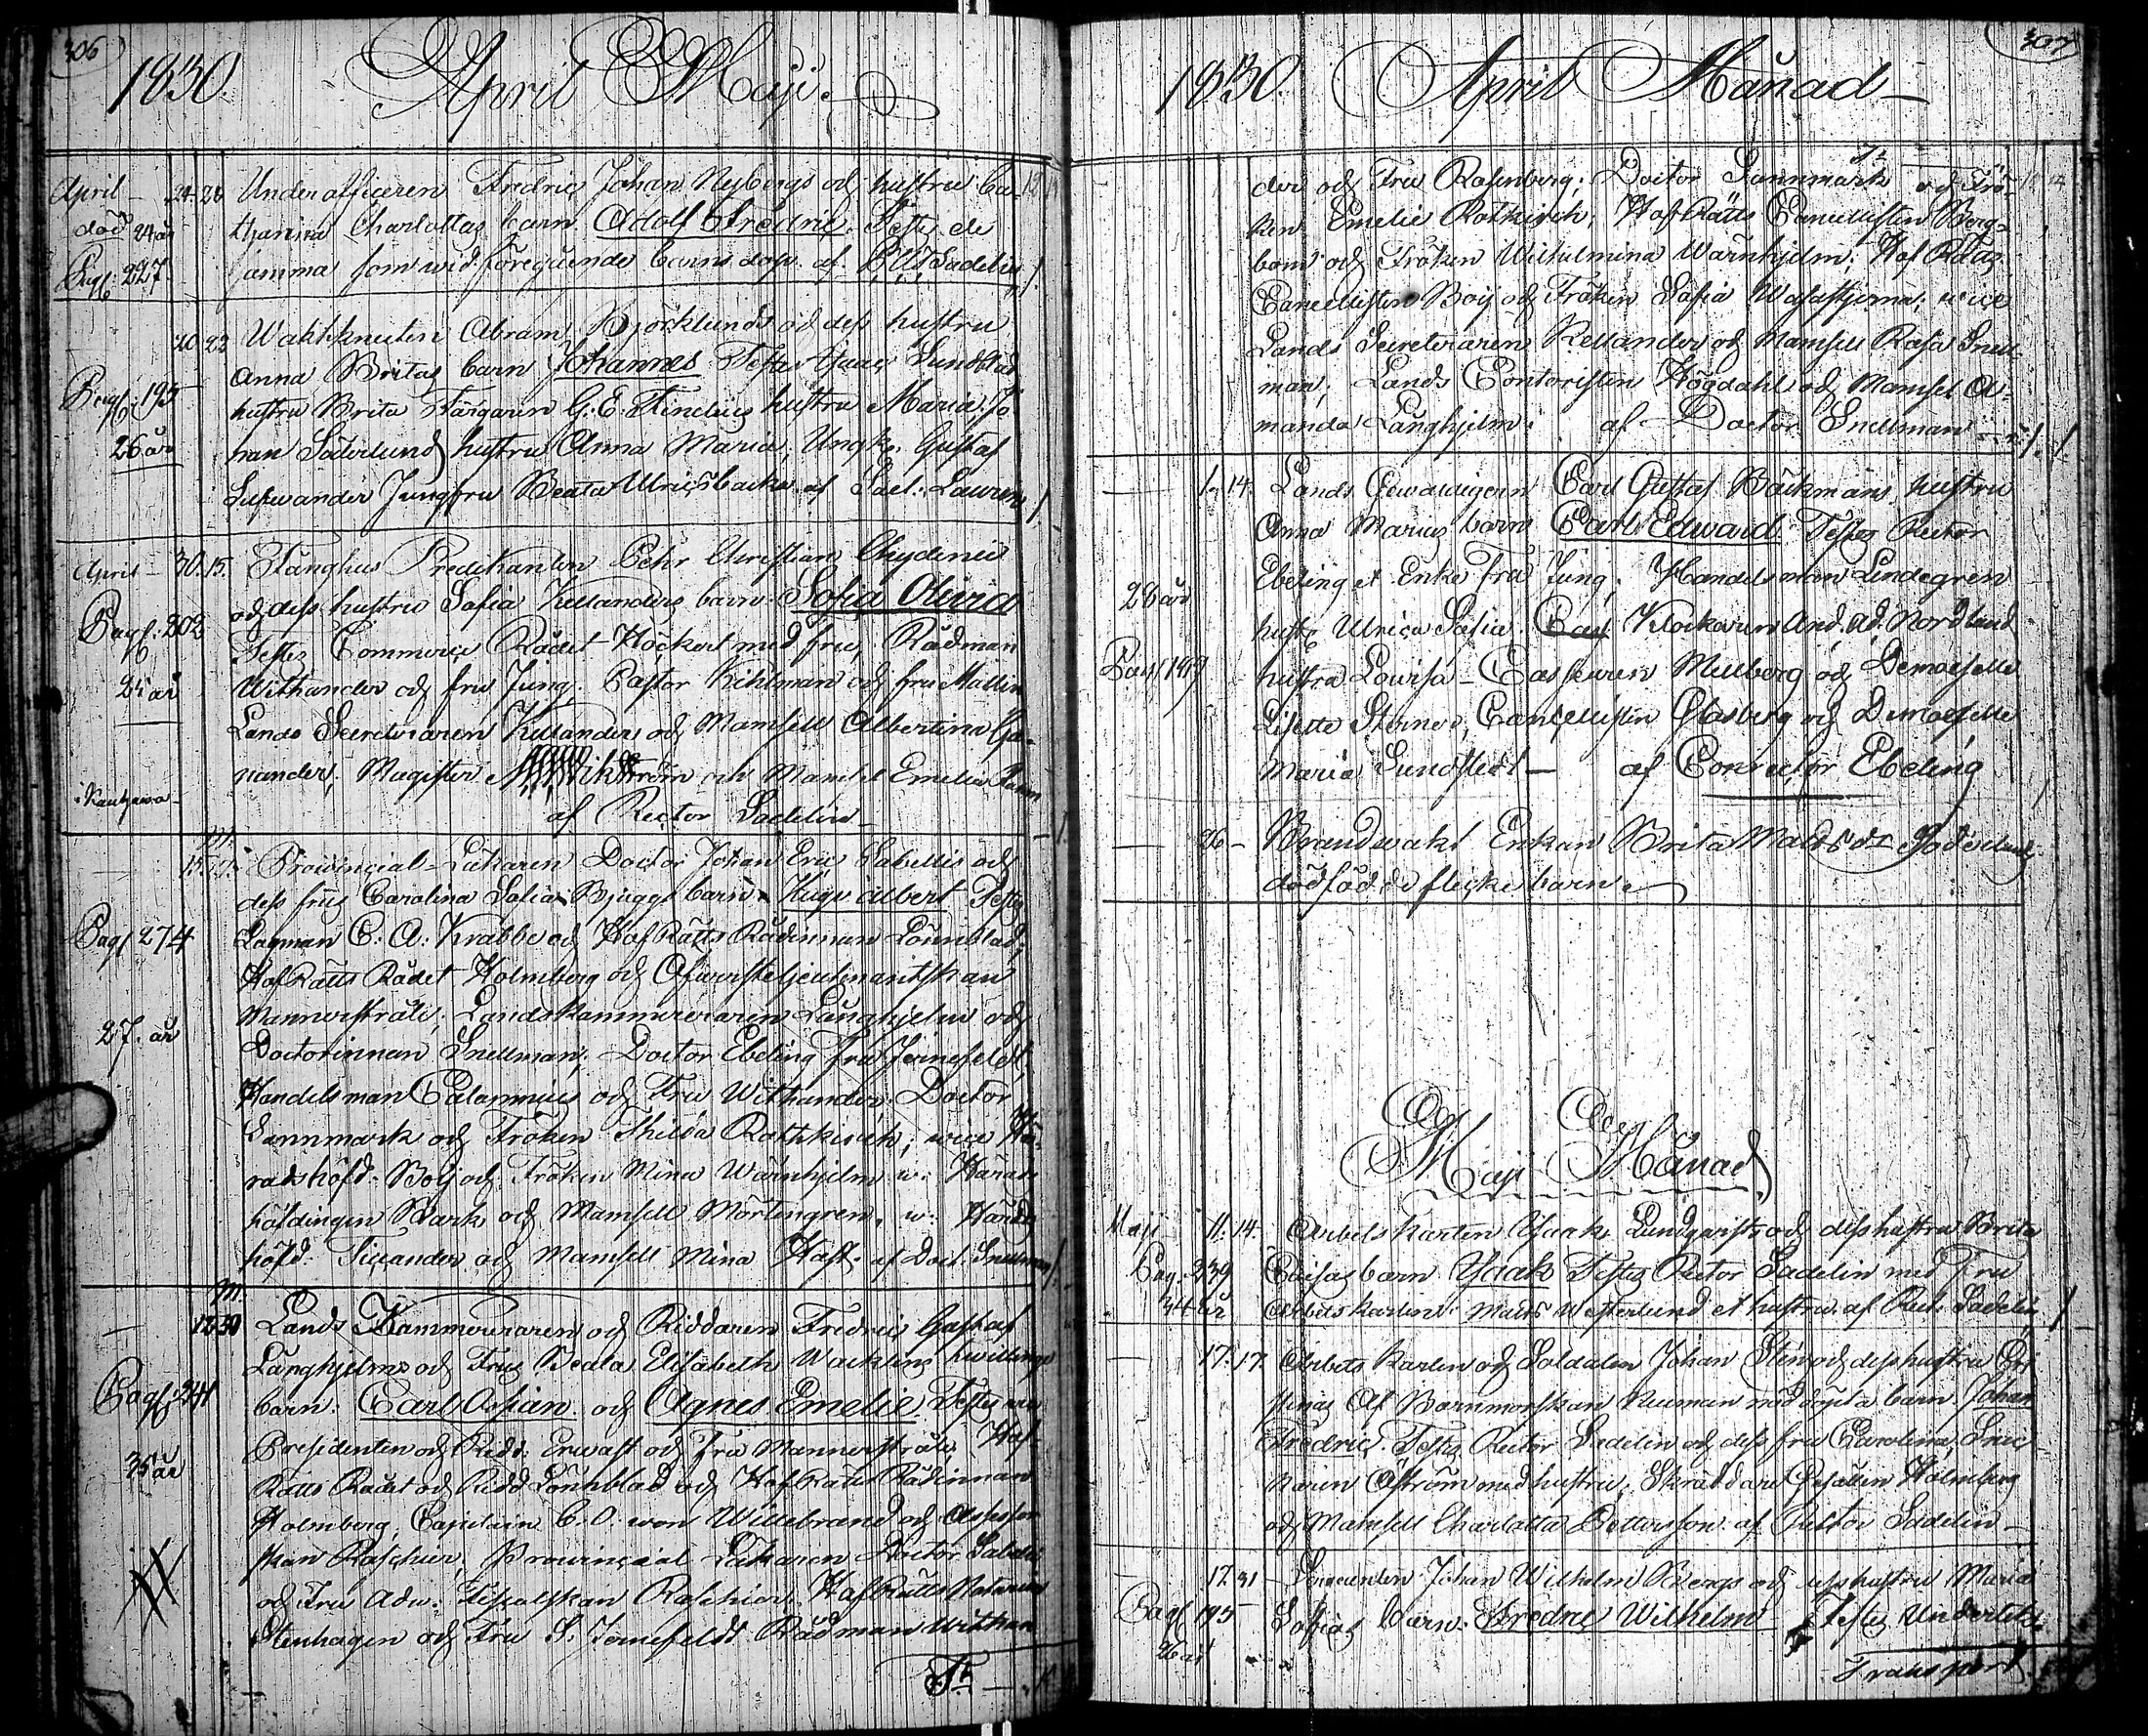 306
1830. April Maji.
April — 24. 28 Underofficeren Fredric Johan Nybergs och hustru Ca-
död 24 år tharina Charlottas barn Adolf Fredric. Testes de
Pag: 227. samma som wid föregående barns dop. af Sadelin
20. 23 Waktknekten Abram Björklunds och dess hustru
Anna Britas barn Johannes Testes Isaac Sundblad
Pag: 195 hustru Brita Färgaren G. E. hustru Maria. Jo
26 år han Söderlund hustru Anna Maria, Ungk. Gustaf
Jungfru Beata Ulricsbacka af Sacl: Lauren
April — 30. 15. Fånghus Predikanten Pehr Christian Chydenii
och dess hustru Sofia Kellanders barn Sofia Olivia
Pag: 302 Testes Commerce Rådet Höckert med fru, Rådman
25 år Withander och fru Jung. Pastor Kihlman och fru Mallin
Lands Secreteraren Kellander och Mamsell Albertina
nander, Magister Wikström och Mamsel Emelia
af Rector Sadelin
M.
15. Provincial-Läkaren Doctor Johan Eric Sabellis och
dess frus Carolina Sofia Bjuggs barn Hugo Albert Testes
Pag 274 Lagman C. A. Krabbe och Hof Rätts Rådinnan Lönnblad;
Hof Rätts Rådet Holmberg och Öfwersteljeutnantskan
Mannerstråle; Landskammereraren Långhjelm och
27. år Doctorinnan Snellman; Doctor Ebeling Fru Jernefeldt,
Handelsman Calamnius och Fru Withander. Doctor
Sannmark och Fröken Thilda Rothkirch; vice Hä-
radshöfd. Boij och Fröken Mina Wärnhjelm w. Härads
höfdingen och Mamsell Mörtengren, w. Härads
höfd. Ticcander och Mamsell Mina Hast. af Doct. Snellman
M.
12 30 Lands Kammereraren och Riddaren Fredric Gustaf
Långhjelms och Frus Beata Elisabeth Wacklins twillinge
Pag: 241 barn. Carl Ossian och Agnes Emelie. Testes
Presidenten och Ridd. Erwast och Fru Mannerstråle, Hof
35 år Rätts Rådet och Ridd Lönnblad och Hofrätts Rådinnan
Holmberg, Capitain C. O. von Willebrand och Assessor
skan Raschier, Provincial Läkaren Doctor Sabelli
och Fru Adv. Fiscalskan Raschier. HofRätts Notarien
Stenhagen och Fru S. Jernefeldt Rådman Withan
Tr.
307
1830. April Månad
Tr
der och Fru Rosenberg; Doctor Sannmark och Frö-
ken Emelie Rotkirch, HofRätts Cancellisten Berg-
bom och Fröken Wilhelmina Wärnhjelm; Hof Rätts
Cancellisten Boij och Fröken Sofia Wasastjerna; wice
Lands Secreteraren Kellander och Mamsell Rosa Snell
man; Lands Contoristen Högdahl och Mamsel A-
manda Långhjelm. af Doctor Snellman
1. 14. Lands Gewaldigern Carl Gustaf Bäckmans hustru
Anna Marias barn Carl Edward. Testes Rector
28 år Ebeling et Enke Fru Jung; Handelsman Lindegren
hustru Ulrica Sofia. Klockaren And. Ad. Nordlund
Pag 149 hustru Lovisa – Casseuren Mellberg och Demoiselle
Lisette Cancellisten och Demoiselle
Maria Sundstedt — af Conrector Ebeling
26 — Brandwakt Enkan Brita Matts dr
dödfödde flicke barn
Maji Månad
Maji 11. 14. Arbetskarlen Isaak Lundqvists och dess hustru Brita
Pag. 339 Caisas barn Isaak Testes Rector Sadelin med Fru
34 år Arbetskarlen Matts Westerlund et hustru af Rect. Sadelin
17. 17. Arbets Karlen och Soldaten Johan Stens och dess hustru
stinas af Barnmorskan Neuman nöddöpta barn Johan
Fredric. Testes Rector Sadelin och dess fru Carolina, Snic
karen Åström med hustru, Skräddare Gesällen Holmberg
och Mamsell Charlotta Pettersson af Rector Sadelin
12 31 Johan Wilhelm Bergs och dess hustru Maria
Pag 195 Sofias barn. Fredric Wilhelm Testes
26 år
Transport